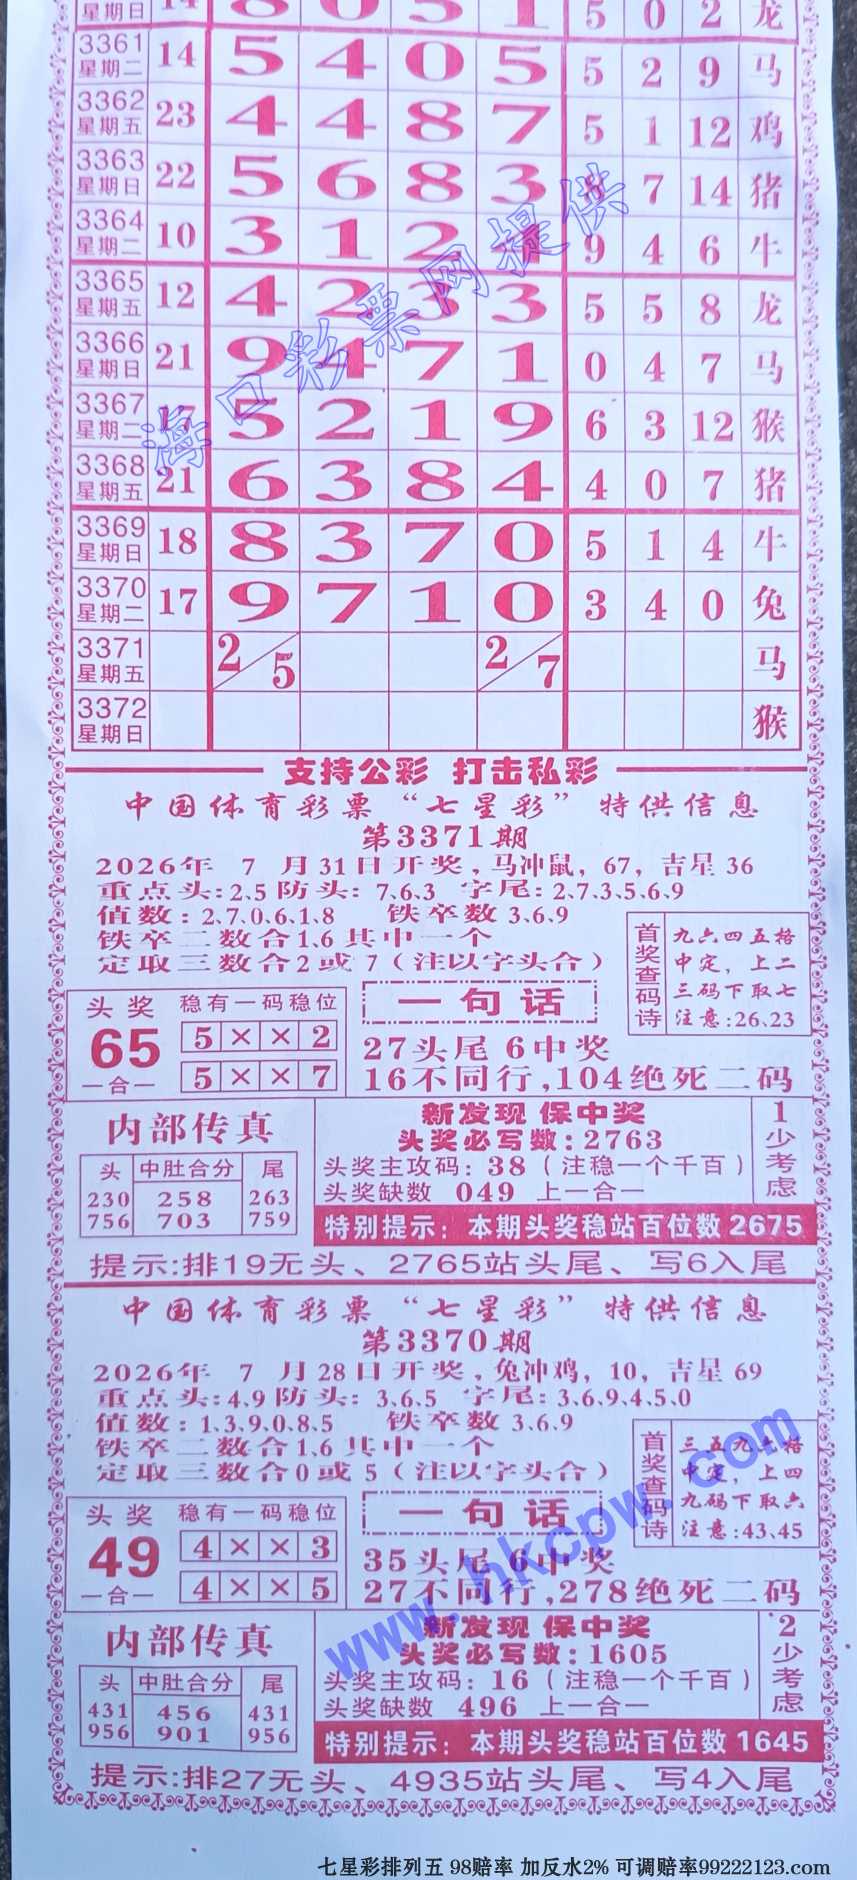 星期日 14 8 0 5 1 5 0 2 龙
3361 星期二 14 5 4 0 5 5 2 9 马
3362 星期五 23 4 4 8 7 5 1 12 鸡
3363 星期日 22 5 6 8 3 7 14 猪
3364 星期二 10 3 1 2 9 4 6 牛
3365 星期五 12 4 2 3 3 5 5 8 龙
3366 星期日 21 9 4 7 1 0 4 7 马
3367 星期二 17 5 2 1 9 6 3 12 猴
3368 星期五 21 6 3 8 4 4 0 7 猪
3369 星期日 18 8 3 7 0 5 1 4 牛
3370 星期二 17 9 7 1 0 3 4 0 兔
3371 星期五 2/5 2/7 马
3372 星期日 猴
海口彩票网提供
支持公彩 打击私彩
中国体育彩票“七星彩”特供信息
第3371期
2026年 7 月31日开奖,马冲鼠,67,吉星36
重点头:2.5防头: 7.6.3 字尾:2.7.3.5.6.9
值数:2.7.0.6.1.8 铁卒数3.6.9
铁卒二数合1.6其中一个
定取三数合2或7(注以字头合)
首奖查码诗
九六四五格
中定,上二
三码下取七
注意:26、23
头奖
65
一合一
稳有一码稳位
5××2
5××7
一句话
27头尾6中奖
16不同行,104绝死二码
内部传真
头 中肚合分 尾
230 258 263
756 703 759
新发现 保中奖
头奖必写数:2763
头奖主攻码:38(注稳一个千百)
头奖缺数 049 上一合一
1少考虑
特别提示:本期头奖稳站百位数2675
提示:排19无头、2765站头尾、写6入尾
中国体育彩票“七星彩”特供信息
第3370期
2026年 7 月28日开奖,兔冲鸡,10,吉星69
重点头:4.9防头: 3.6.5 字尾:3.6.9.4.5.0
值数:1.3.9.0.8.5 铁卒数3.6.9
铁卒二数合1.6其中一个
定取三数合0或5(注以字头合)
首奖查码诗
三五九 格
中定,上四
九码下取六
注意:43、45
头奖
49
一合一
稳有一码稳位
4××3
4××5
一句话
35头尾6中奖
27不同行,278绝死二码
内部传真
头 中肚合分 尾
431 456 431
956 901 956
新发现 保中奖
头奖必写数:1605
头奖主攻码:16(注稳一个千百)
头奖缺数 496 上一合一
2少考虑
特别提示:本期头奖稳站百位数1645
提示:排27无头、4935站头尾、写4入尾
www.hkcpw.com
七星彩排列五 98赔率 加反水2% 可调赔率99222123.com